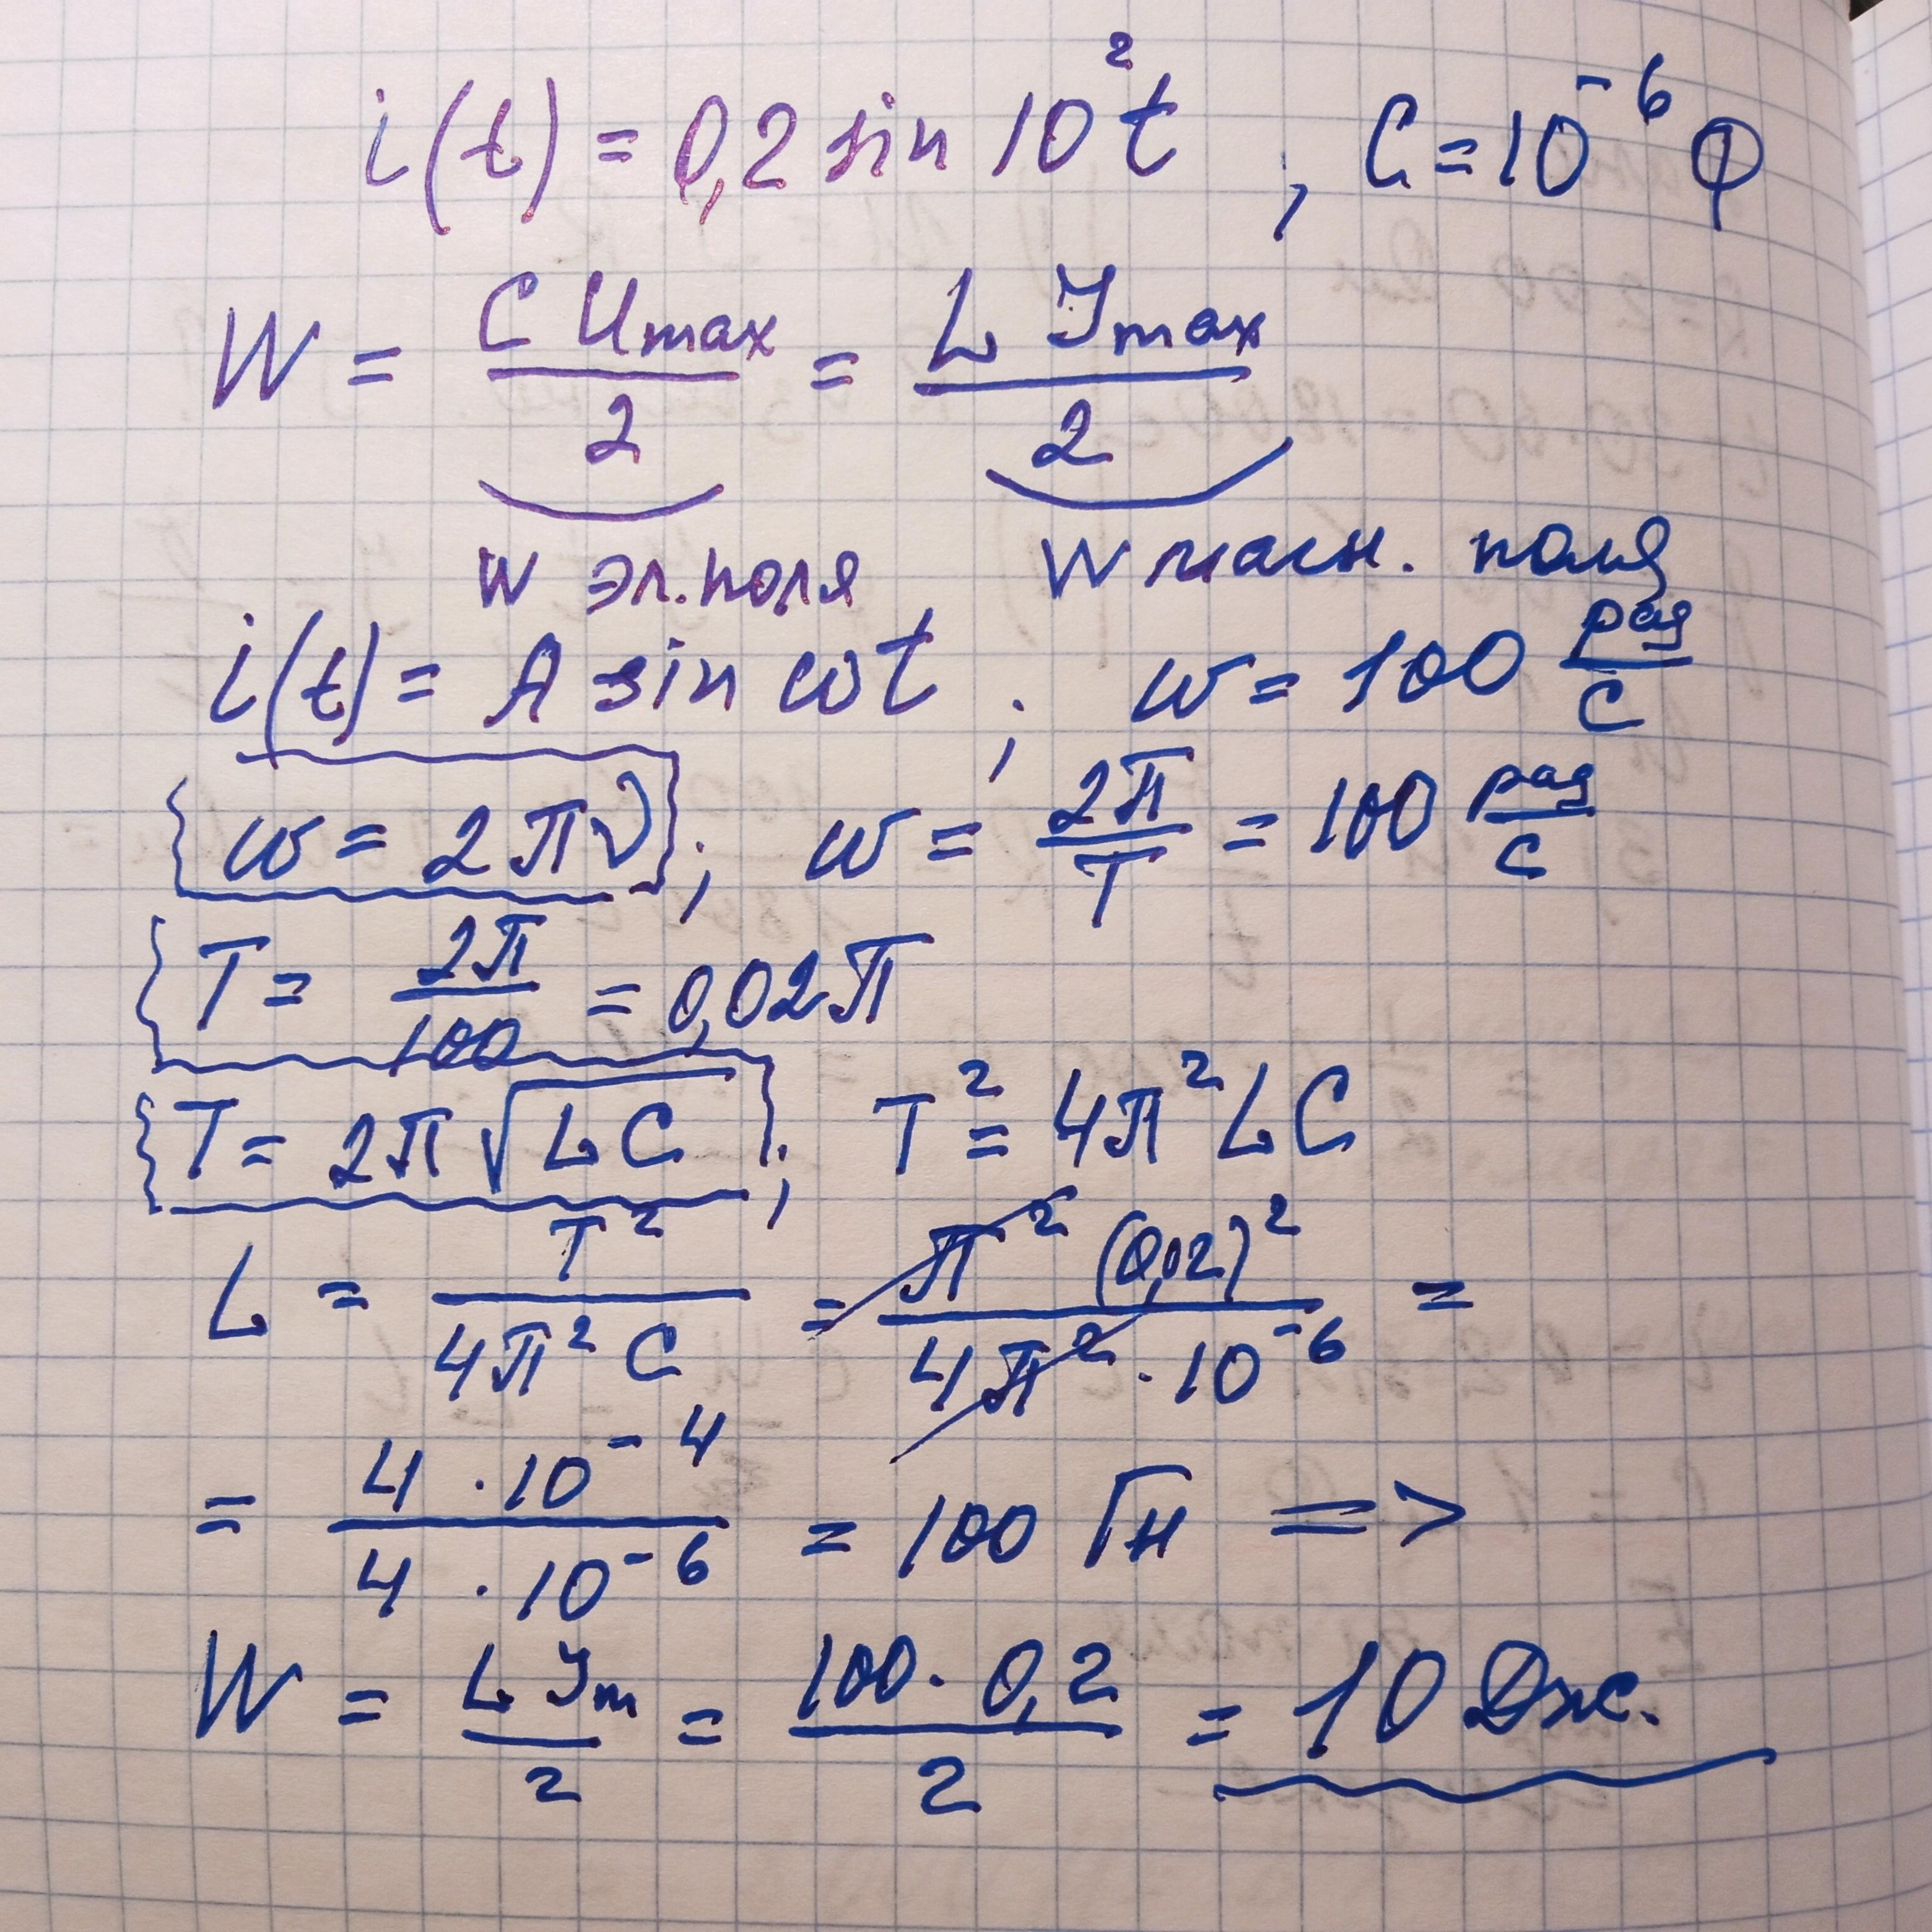 i(t) = 0,2 sin 10²t ; C = 10⁻⁶ Ф
W = C Umax / 2 = L Jmax / 2
W эл. поля W магн. поля
i(t) = A sin ωt ; ω = 100 рад/с
ω = 2πν ; ω = 2π/T = 100 рад/с
T = 2π/100 = 0,02π
T = 2π√LC ; T² = 4π²LC
L = T² / 4π²C = π² (0,02)² / 4π² · 10⁻⁶ =
= 4 · 10⁻⁴ / 4 · 10⁻⁶ = 100 Гн =>
W = L Jm / 2 = 100 · 0,2 / 2 = 10 Дж.